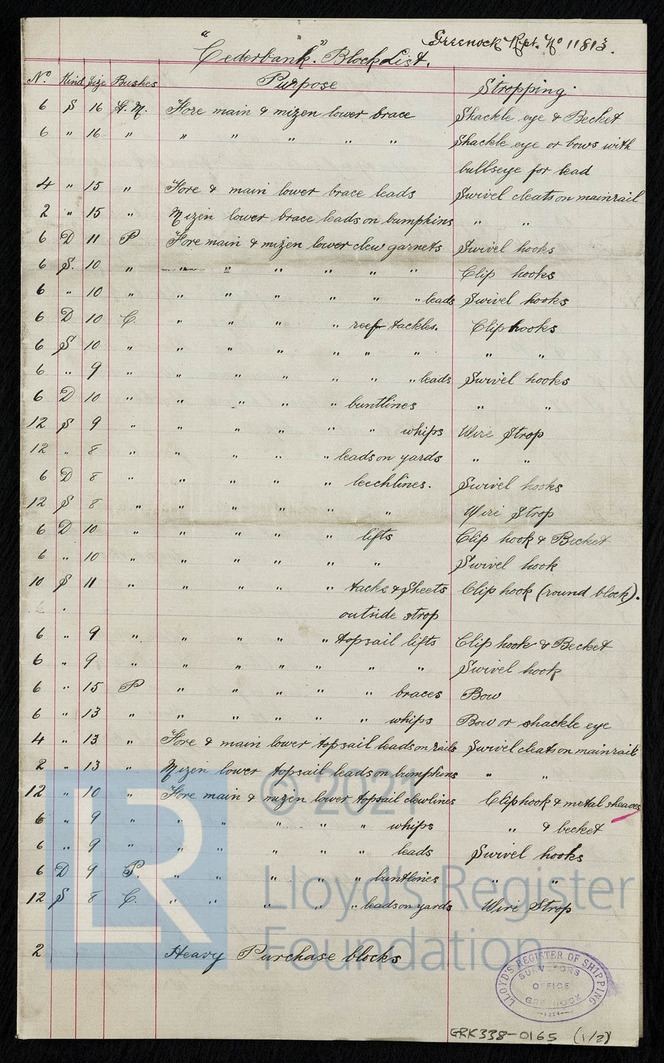 Greenock Rpt. No 11813.
"Cederbank". Block List.
No. Kind Size Bushes Purpose Stropping.
6 S 16 H. M. Fore main & mizen lower brace Shackle eye & Becket
6 " 16 " " " " " " Shackle eye or bows with
bullseye for lead
4 " 15 " Fore & main lower brace leads Swivel cleats on mainrail
2 " 15 " Mizen lower brace leads on bumpkins " "
6 D 11 P Fore main & mizen lower clew garnets Swivel hooks
6 S. 10 " " " " " " " Clip hooks
6 " 10 " " " " " " " leads Swivel hooks
6 D 10 C. " " " " reef tackles. Clip hooks
6 S 10 " " " " " " " " "
6 " 9 " " " " " " " leads Swivel hooks
6 D 10 " " " " " buntlines " "
12 S 9 " " " " " " whips Wire Strop
12 " 8 " " " " " leads on yards " "
6 D 8 " " " " " leechlines. Swivel hooks
12 S 8 " " " " " " Wire Strop
6 D 10 " " " " " lifts Clip hook & Becket
6 " 10 " " " " " " Swivel hook
10 S 11 " " " " " tacks & sheets Clip hook (round block).
outside strop
6 " 9 " " " " " topsail lifts Clip hook & Becket
6 " 9 " " " " " " " Swivel hook
6 " 15 P " " " " " braces Bow
6 " 13 " " " " " " whips Bow or shackle eye
4 " 13 " Fore & main lower topsail leads on rails Swivel cleats on mainrail
2 " 13 " Mizen lower topsail leads on bumpkins " "
12 " 10 " Fore main & mizen lower topsail clewlines Clip hook & metal sheaves
6 " 9 " " " " " " whips " & becket
6 " 9 " " " " " " leads Swivel hooks
6 D 9 P. " " " " " buntlines " "
12 S 8 C. " " " " " leads on yards Wire Strop
2 Heavy Purchase blocks
LLOYD'S REGISTER OF SHIPPING
SURVEYORS
OFFICE
GREENOCK
GRK338-0165 (1/2)
© 2021
LR
Lloyd's Register
Foundation